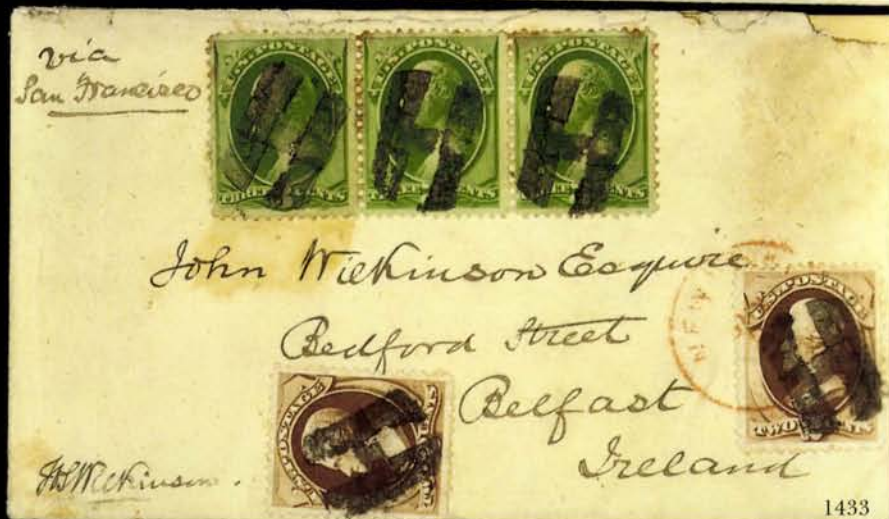 via
San Francisco
U.S. POSTAGE
U.S. POSTAGE
U.S. POSTAGE
THREE CENTS
THREE CENTS
THREE CENTS
John Wilkinson Esquire
Bedford Street
Belfast
Ireland
NEW
U.S. POSTAGE
TWO CENTS
U.S. POSTAGE
Wilkinson.
1433